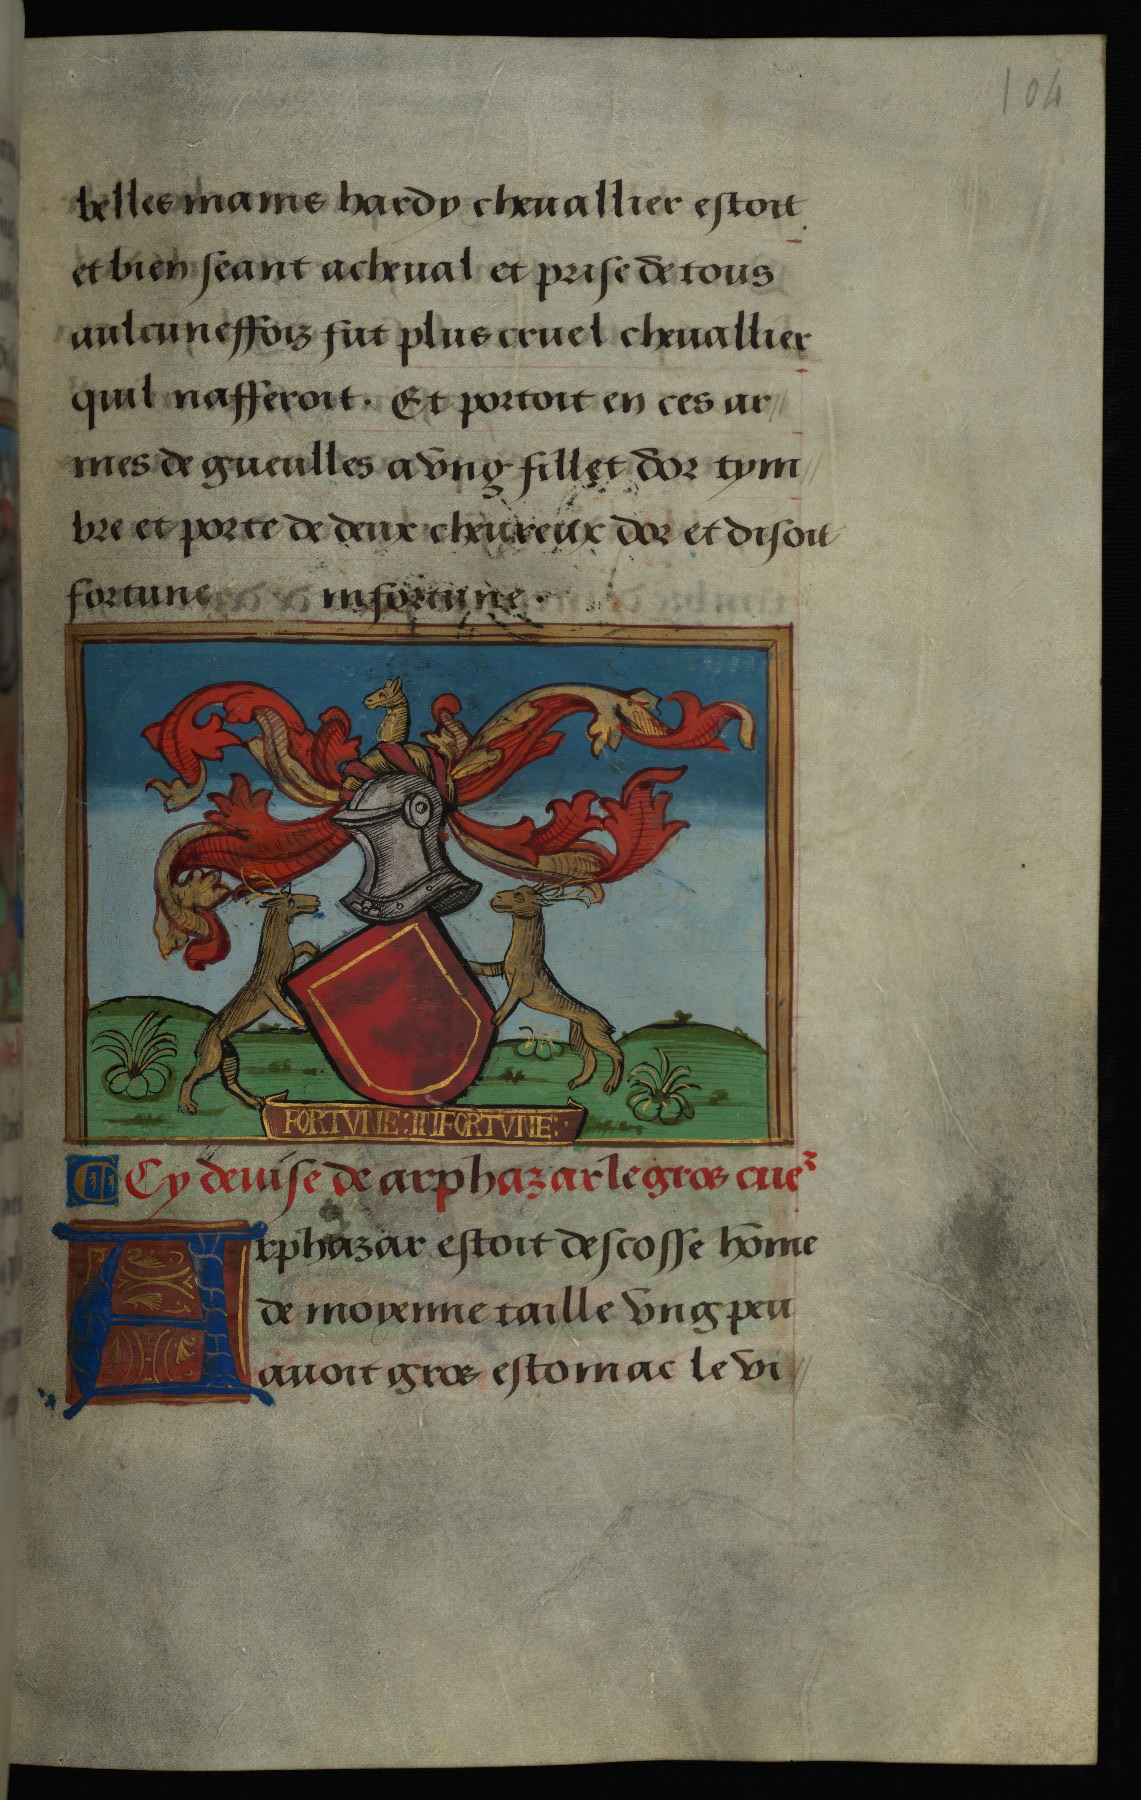 104
belles mains hardy chevallier estoit
et bien seant acheval et prise de tous
aulcuneffoiz fut plus cruel chevallier
quil nafferoit. Et portoit en ces ar//
mes de gueulles a vng fillet dor tym//
bre et porte de deux cheureux dor et disoit
fortune infortune.
FORTVNE: INFORTVNE:
Cy deuise de arphazar le gros cueʳ
Arphazar estoit descosse hōme
de moyenne taille vng peu
auoit gros estomac le vi//